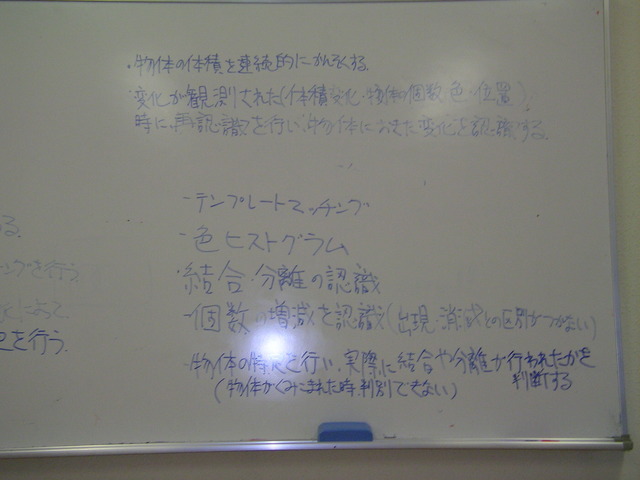 ・物体の体積を連続的にかんそくする.
変化が観測された(体積変化・物体の個数 色・位置)
時に、再認識を行い、物体におきた変化を認識する.
-テンプレートマッチング
-色ヒストグラム
・結合・分離の認識
-個数の増減を認識(出現・消滅との区別がつかない)
-物体の特定を行い、実際に結合や分離が行われたかを
判断する
(物体がくみこまれた時判別できない)
る.
ングを行う
によって
を行う.